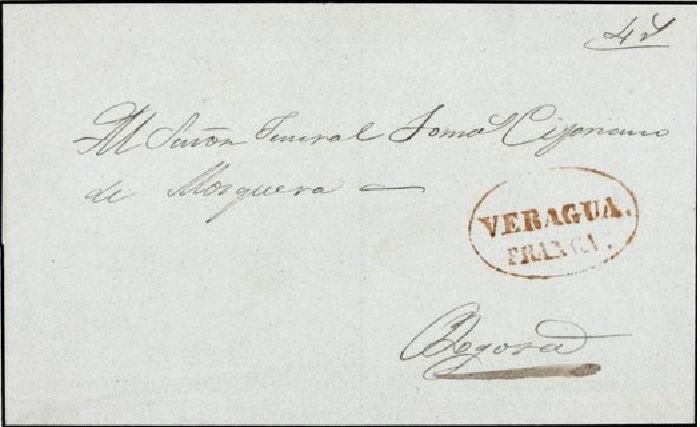 4 r
Al Señor General Tomas Cipriano
de Mosquera —
VERAGUA.
FRANCA.
Bogotá